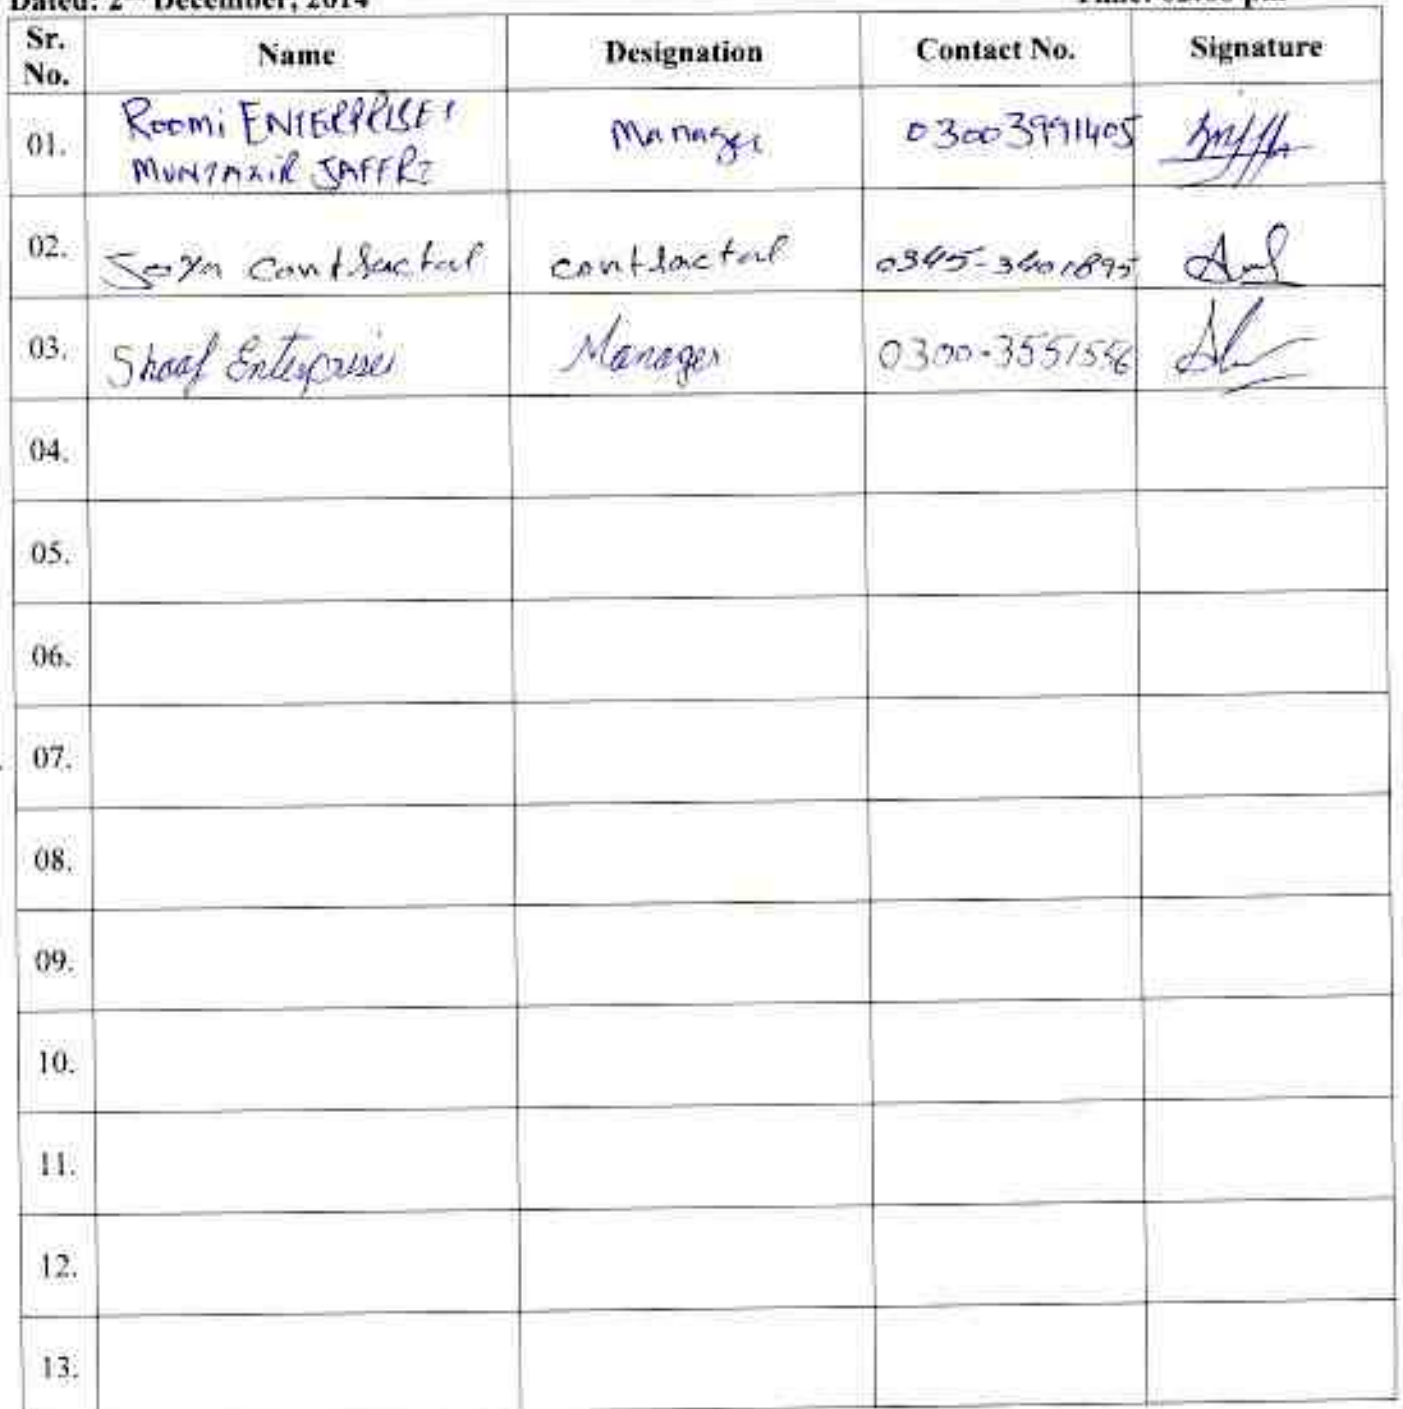 Dated: 2nd December, 2014
Sr. No. Name Designation Contact No. Signature
01. Roomi ENTERPRISES Manager 03003991405
MUNTAXIR JAFFRI
02. contractor 0345-3401895
03. Shoaf Enterprises Manager 0300-3551556
04.
05.
06.
07.
08.
09.
10.
11.
12.
13.